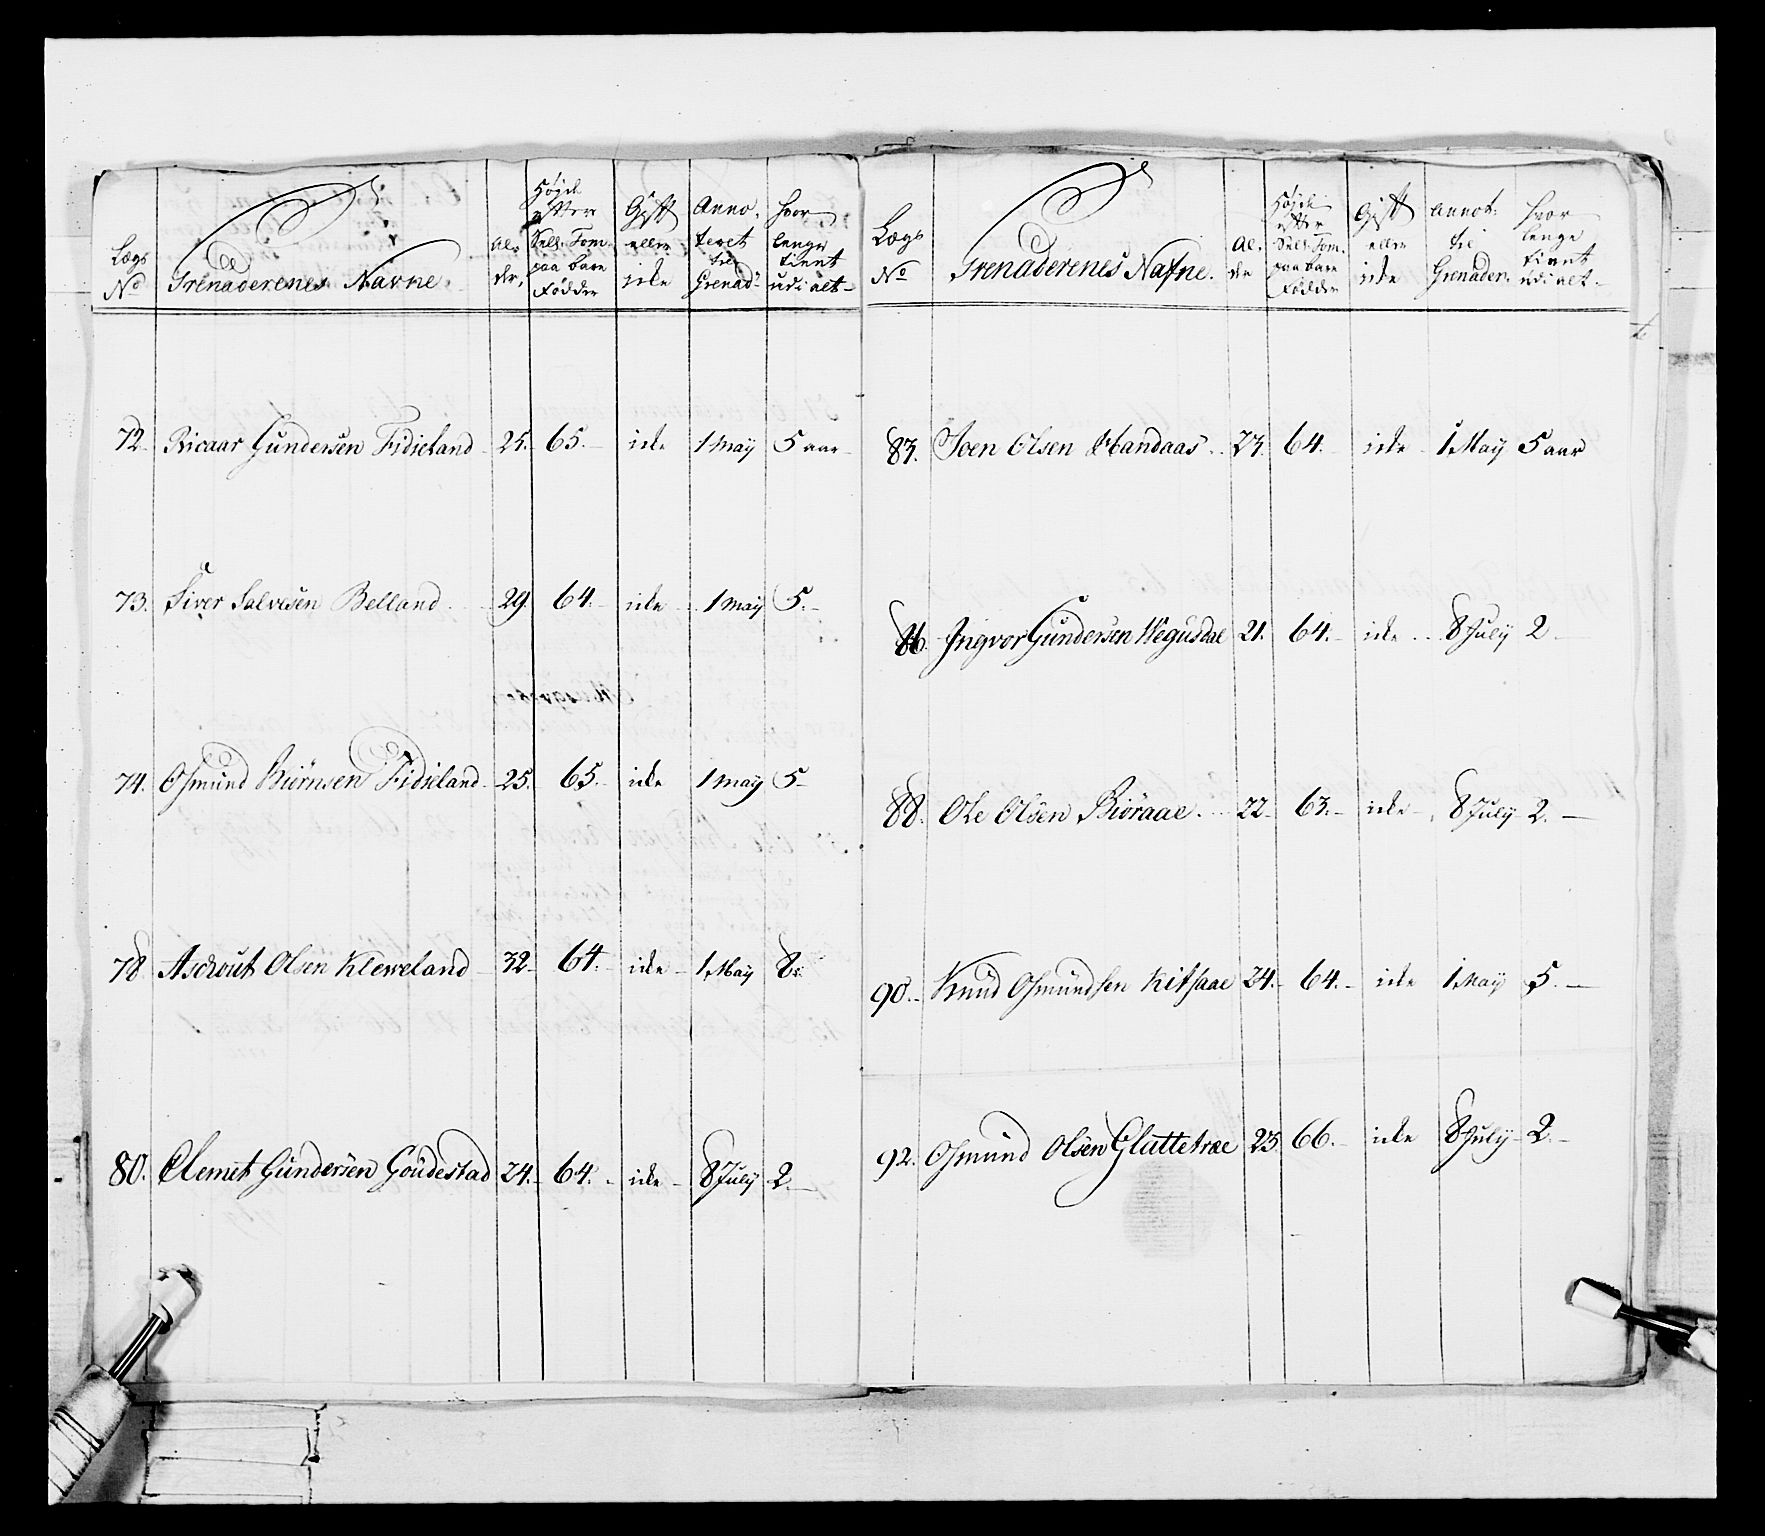 Lægs No | Grenaderenes Navne. | Al- der. | Højde efter Sell. Tom. paa bare Födder | Gift eller icke | Anno- teret til Grenad: | hvor lenge tient udi alt
72. Ricaar Gundersen Fidieland 25. 65. icke 1 May 5 aar
73. Siver Salvesen Belland 29. 64. icke 1 May 5.
74. Osmund Biörnsen Fidieland 25. 65. icke 1 May 5
78 Aschout Olsen Kleweland 32. 64. icke 1 May 8.
80. Clemet Gundersen Goudestad 24. 64. icke 8 July 2.
Lægs No | Grenaderenes Nafne. | Al- der | Højde efter Sell. Tom. paa bare Födder | Gift eller icke | Annot: til Grenader. | hvor lenge tient udi alt
83. Joen Olsen Mandaas 23. 64. icke 1 May 5 aar
86. Ingvor Gundersen Hegusdal 21. 64. icke 8 July 2
88. Ole Olsen Bioraae. 22 63. icke 8 July 2.
90. Knud Osmundsen Kitsaae 24. 64. icke 1 May 5.
92. Osmund Olsen Glattetræ 23. 66. icke 8 July 2.